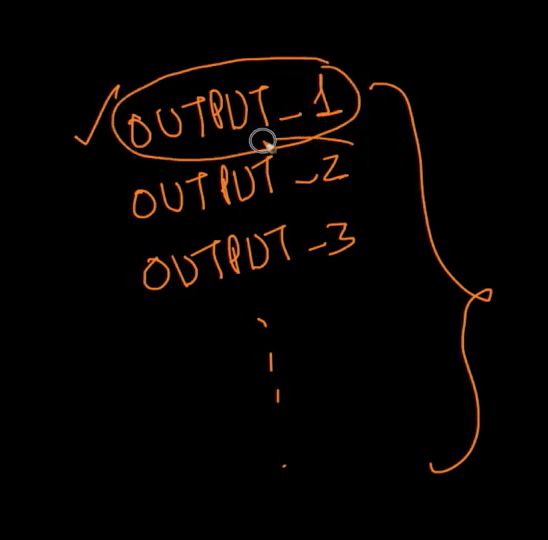 OUTPUT_1
OUTPUT_2
OUTPUT_3